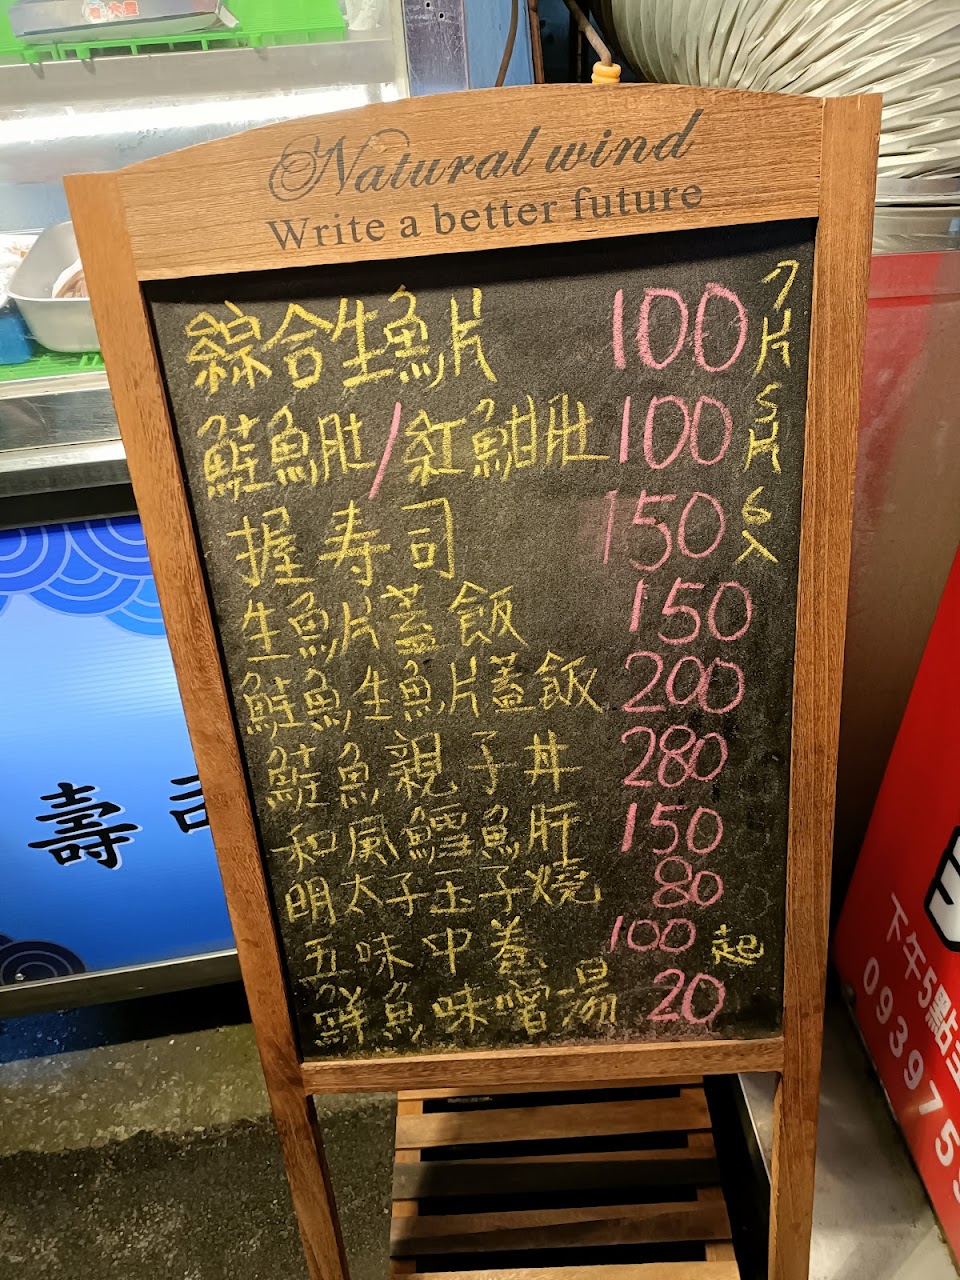 Natural wind
Write a better future
綜合生魚片 100 7片
鮭魚肚/紅魽肚 100 5片
握寿司 150 6入
生魚片蓋飯 150
鮭魚生魚片蓋飯 200
鮭魚親子丼 280
和風鱈魚肝 150
明太子玉子燒 80
五味中卷 100起
鮮魚味噌湯 20
壽司
下午5點至
0939759